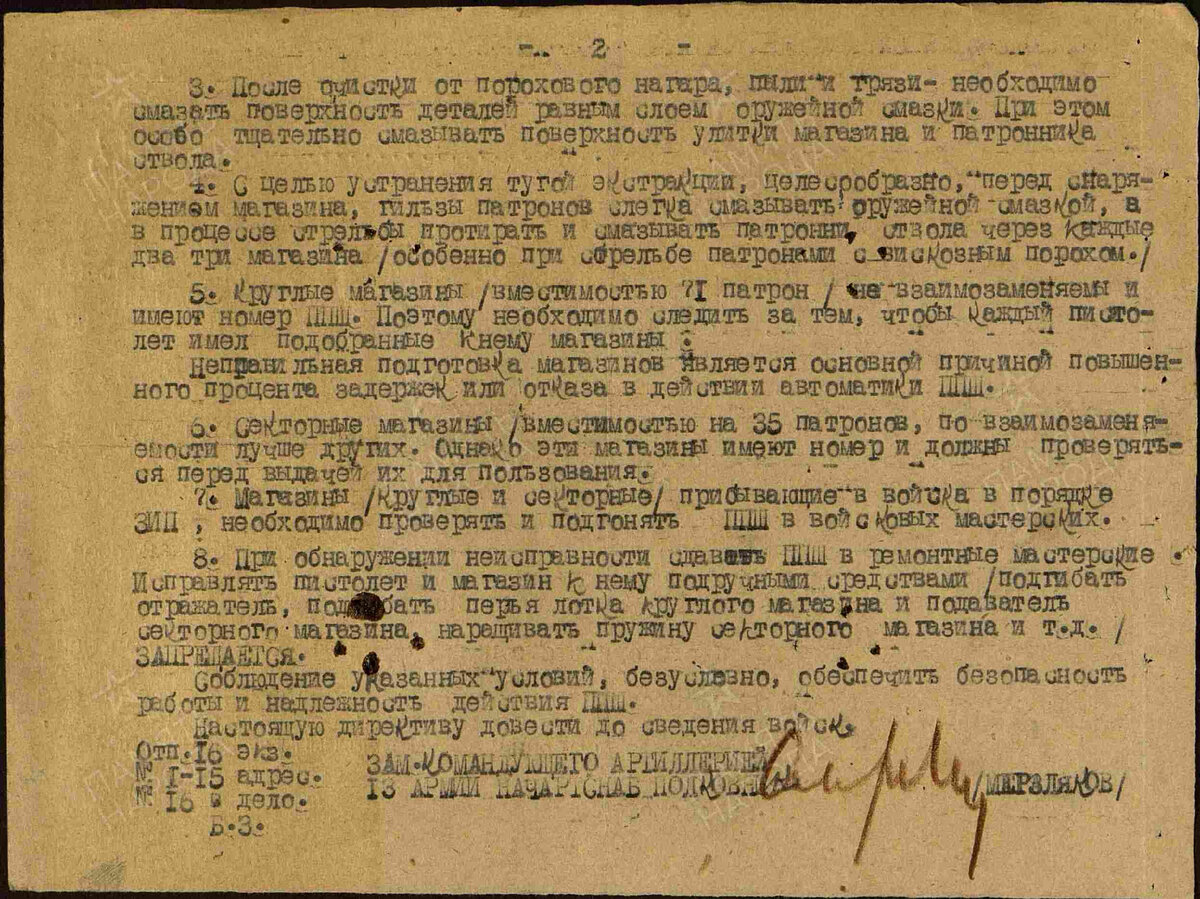 -.. 2 -
3. После очистки от порохового нагара, пыли и грязи- необходимо
смазать поверхность деталей равным слоем оружейной смазки. При этом
особо тщательно смазывать поверхность улитки магазина и патронника
ствола.
4. С целью устранения тугой экстракции, целесообразно, перед снаря-
жением магазина, гильзы патронов слегка смазывать оружейной смазкой, а
в процессе стрельбы протирать и смазывать патронни. ствола через каждые
два три магазина /особенно при стрельбе патронами с вискозным порохом./
5. Круглые магазины /вместимостью 71 патрон / не взаимозаменяемы и
имеют номер ППШ. Поэтому необходимо следить за тем, чтобы каждый писто-
лет имел подобранные кнему магазины :
Неправильная подготовка магазинов является основной причиной повышен-
ного процента задержек или отказа в действии автоматики ППШ.
6. Секторные магазины /вместимостью на 35 патронов, по взаимозаменя-
емости лучше других. Однако эти магазины имеют номер и должны проверять-
ся перед выдачей их для пользования.
7. Магазины /круглые и секторные/ прибывающие в войска в порядке
ЗИП , необходимо проверять и подгонять ППШ в войсковых мастерских.
8. При обнаружении неисправности сдавать ППШ в ремонтные мастерские .
Исправлять пистолет и магазин к нему подручными средствами /подгибать
отражатель, подгибать перья лотка круглого магазина и подаватель
секторного магазина, наращивать пружину секторного магазина и т.д. /
ЗАПРЕЩАЕТСЯ.
Соблюдение указанных условий, безусловно, обеспечить безопасность
работы и надлежность действия ППШ.
Настоящую директиву довести до сведения войск.
Отп.16 экз.
ЗАМ.КОМАНДУЮЩЕГО АРТИЛЛЕРИЕЙ
№ 1-15 адрес.
13 АРМИИ НАЧАРТСНАБ ПОЛКОВНИК /МЕРЗЛЯКОВ/
№ 16 в дело.
Б.З.